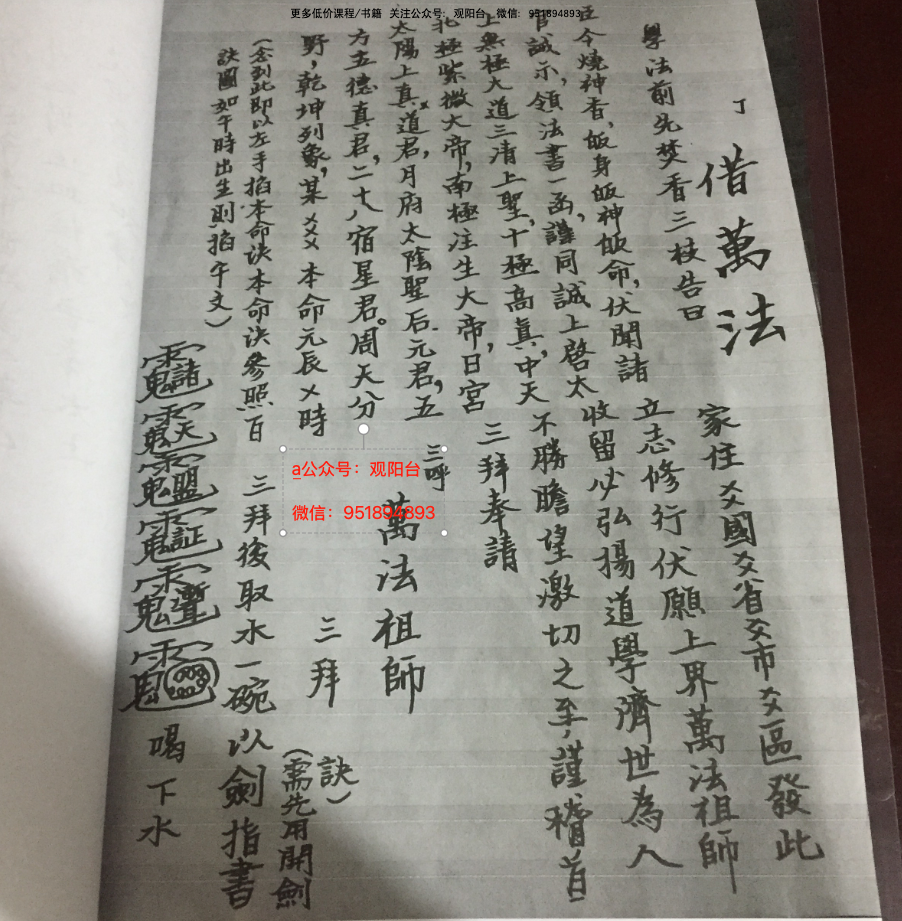 更多低价课程/书籍 关注公众号：观阳台 微信：951894893
借萬法
學法前先焚香三枝告曰
今燒神香，皈身皈神皈命，伏聞諸
誠示，領法書一函，謹同誠上啓太
上無極大道三清上聖，十極高真，中天
北極紫微大帝，南極注生大帝，日宮
太陽上真道君，月府太陰聖后元君，五
方五德真君，二十八宿星君。周天分
野，乾坤列象，某㐅㐅㐅本命元辰㐅時
（念到此即以左手掐本命诀本命决參照百
訣圖如午時出生則掐午文）
家住㐅國㐅省㐅市㐅區發此
立志修行伏願上界萬法祖師
收留必弘揚道學濟世為人
不勝瞻望激切之至，謹稽首
三拜奉請
三呼
萬法祖師
三拜
（需先用開劍
訣）
三拜後取水一碗以劍指書
喝下水
a公众号：观阳台
微信：951894893